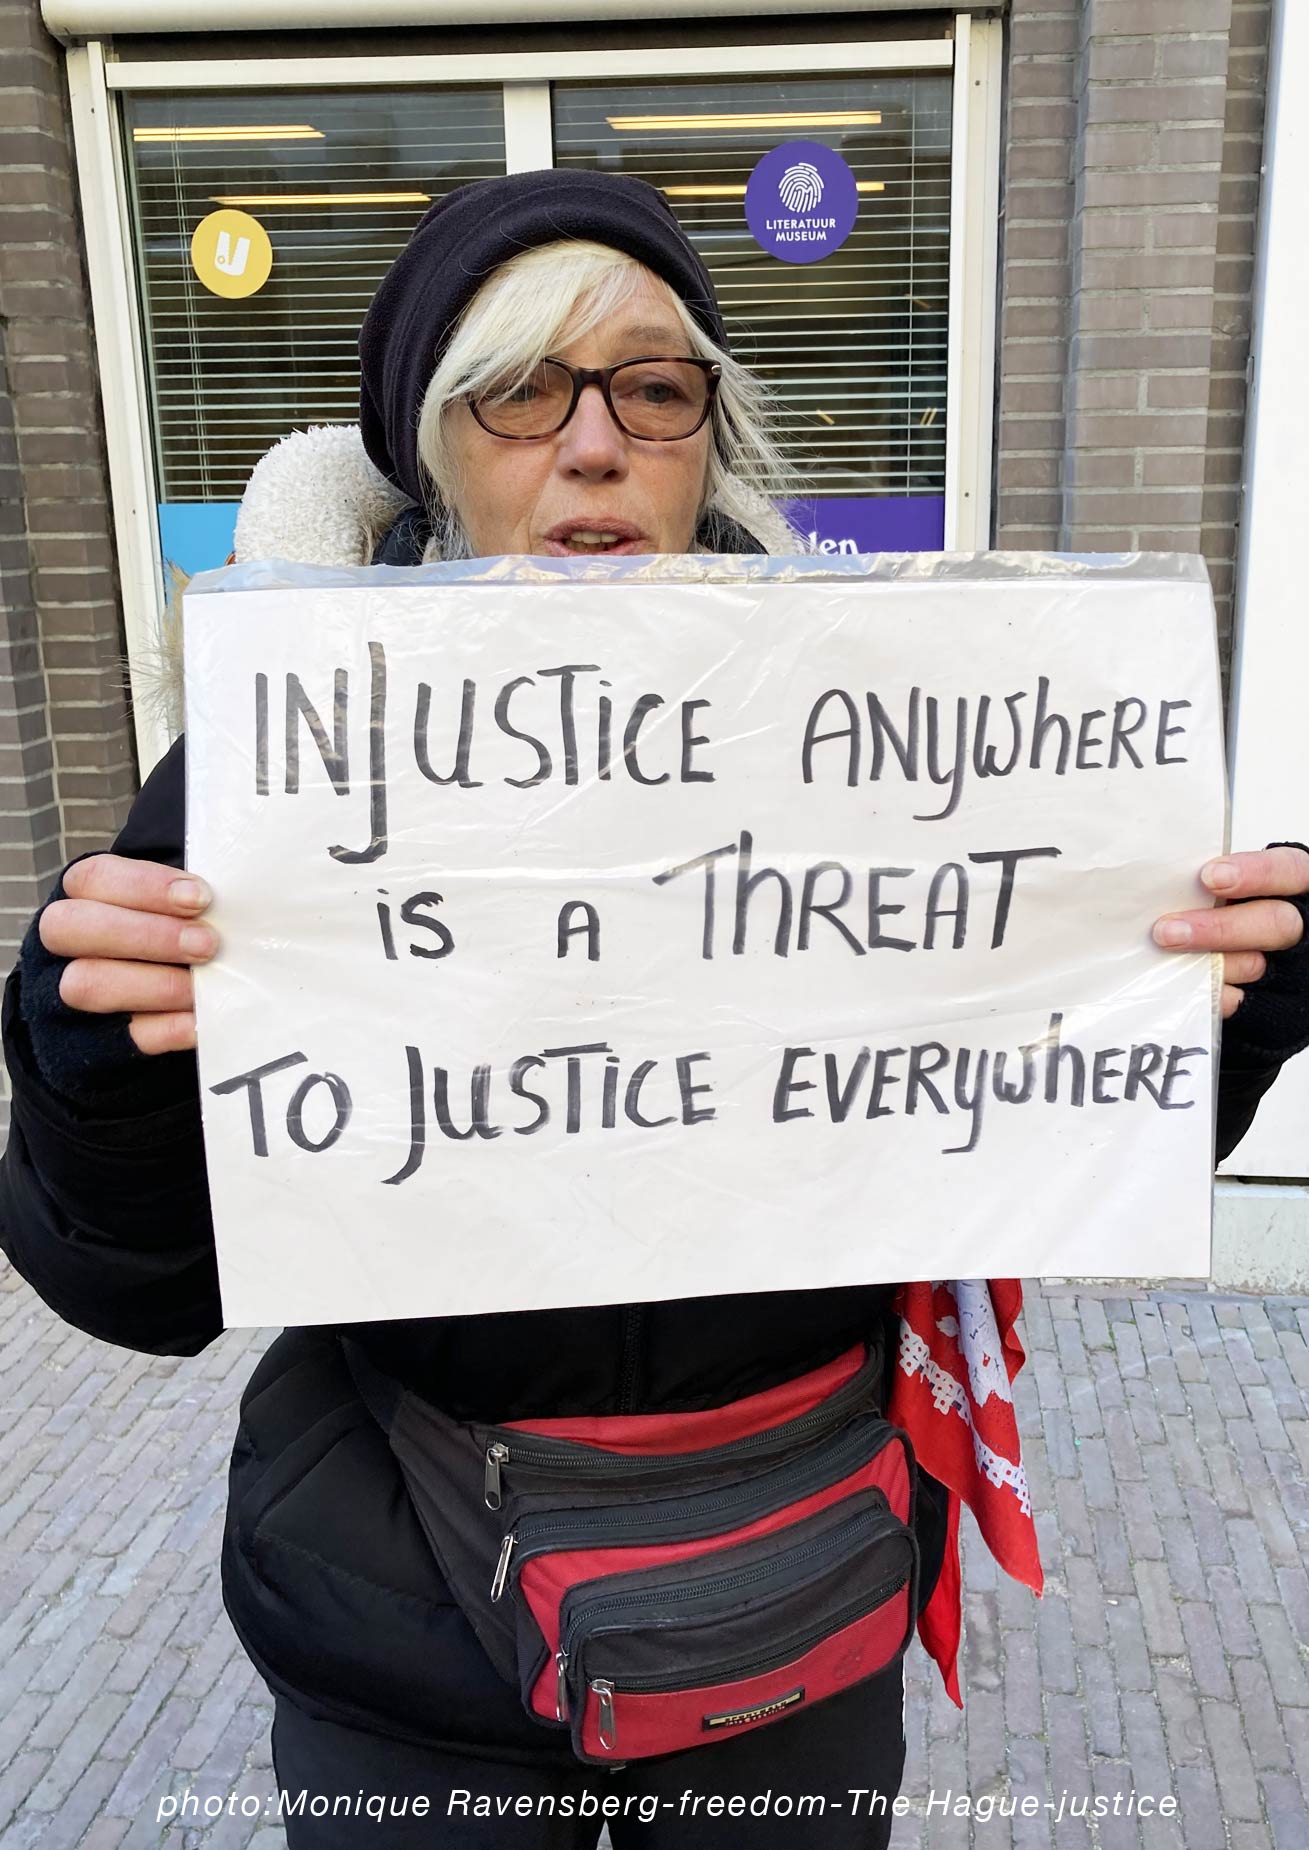 LITERATUUR
MUSEUM
len
INJUSTICE ANYWHERE
is A THREAT
TO JUSTICE EVERYWHERE
photo:Monique Ravensberg-freedom-The Hague-justice